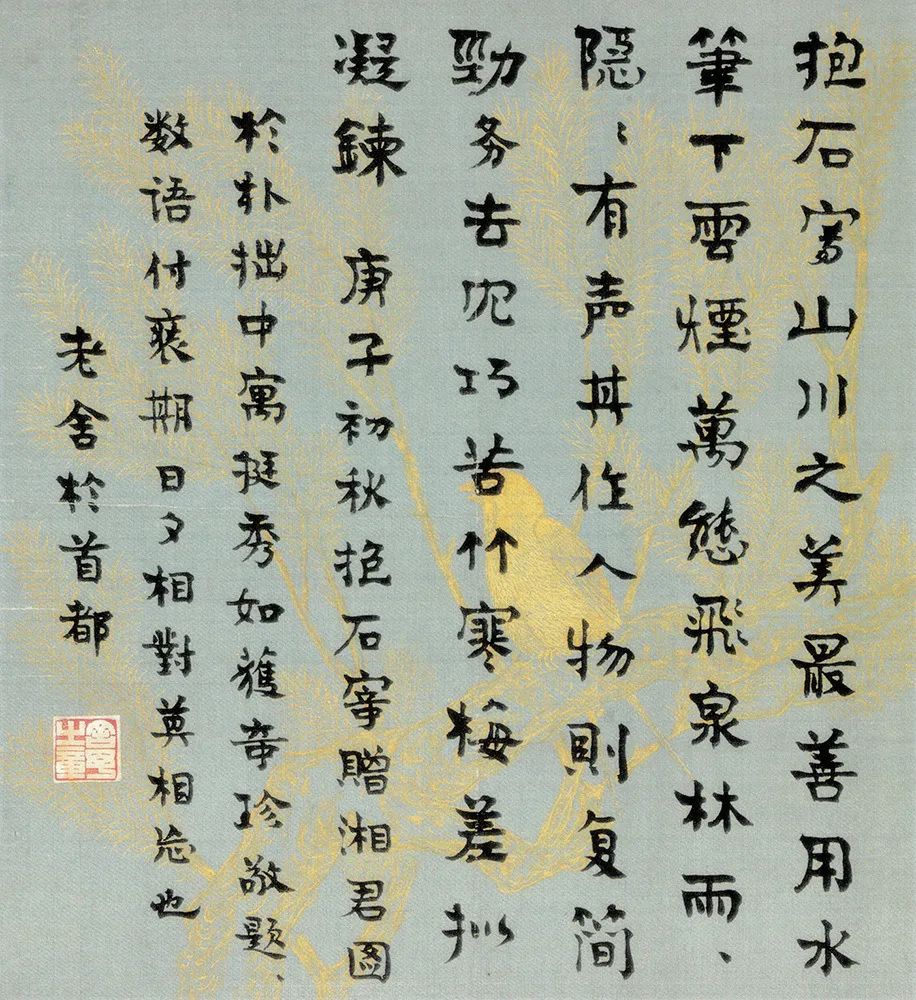 抱石寫山川之美最善用水
筆下雲煙萬態飛泉林雨、
隐〻有声其作人物則复简
勁务去巧苦竹寒梅差拟
凝鍊 庚子初秋抱石寄贈湘君图
於朴拙中寓挺秀如獲奇珍敬题、
数语付裱期日夕相對莫相忘也
老舍於首都